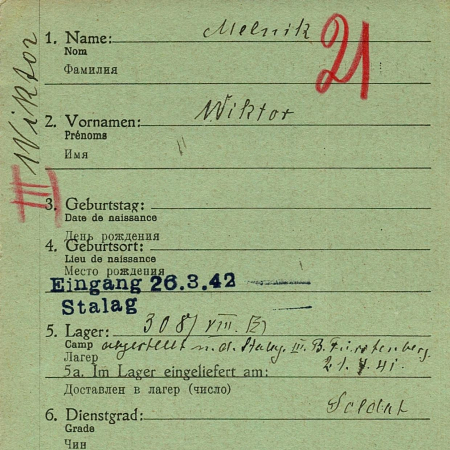 21
III Wiktor
1. Name: Melnik
Nom
Фамилия
2. Vornamen: Wiktor
Prénoms
Имя
3. Geburtstag:
Date de naissance
День рождения
4. Geburtsort:
Lieu de naissance
Место рождения
Eingang 26.3.42
Stalag
5. Lager: 308/VIII.
Camp n. d. Stalag III. B. Fürstenberg
Лагер
5a. Im Lager eingeliefert am: 21. 41.
Доставлен в лагер (число)
6. Dienstgrad: Soldat
Grade
Чин